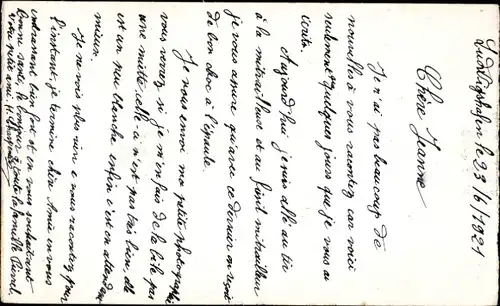 Ludwigshafen le 23/6/1921
Chère Jeanne
Je n'ai pas beaucoup de
nouvelles à vous racontez car voici
seulement quelques jours que je vous ai
écrit.
Aujourd'hui je suis allé au tir
à la mitrailleuse et au fusil mitrailleur
je vous assure qu'avec ce dernier on reçoit
de bon choc à l'épaule.
Je vous envoi ma petite photographie
vous verrez si je m'en fais de la bile pas
une miette, elle n'est pas très bien, elle
est un peu blanche enfin c'est en attendant
mieux.
Je ne vois plus rien a vous racontez pour
l'instant, je termine chère Amie en vous
embrassant bien fort et en vous souhaitant
bonne santé, le bonjour à toute la famille
votre petit ami